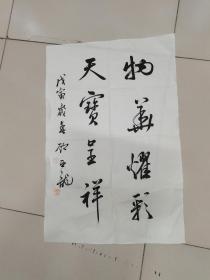 物华耀彩
天寶呈祥
戊寅歲